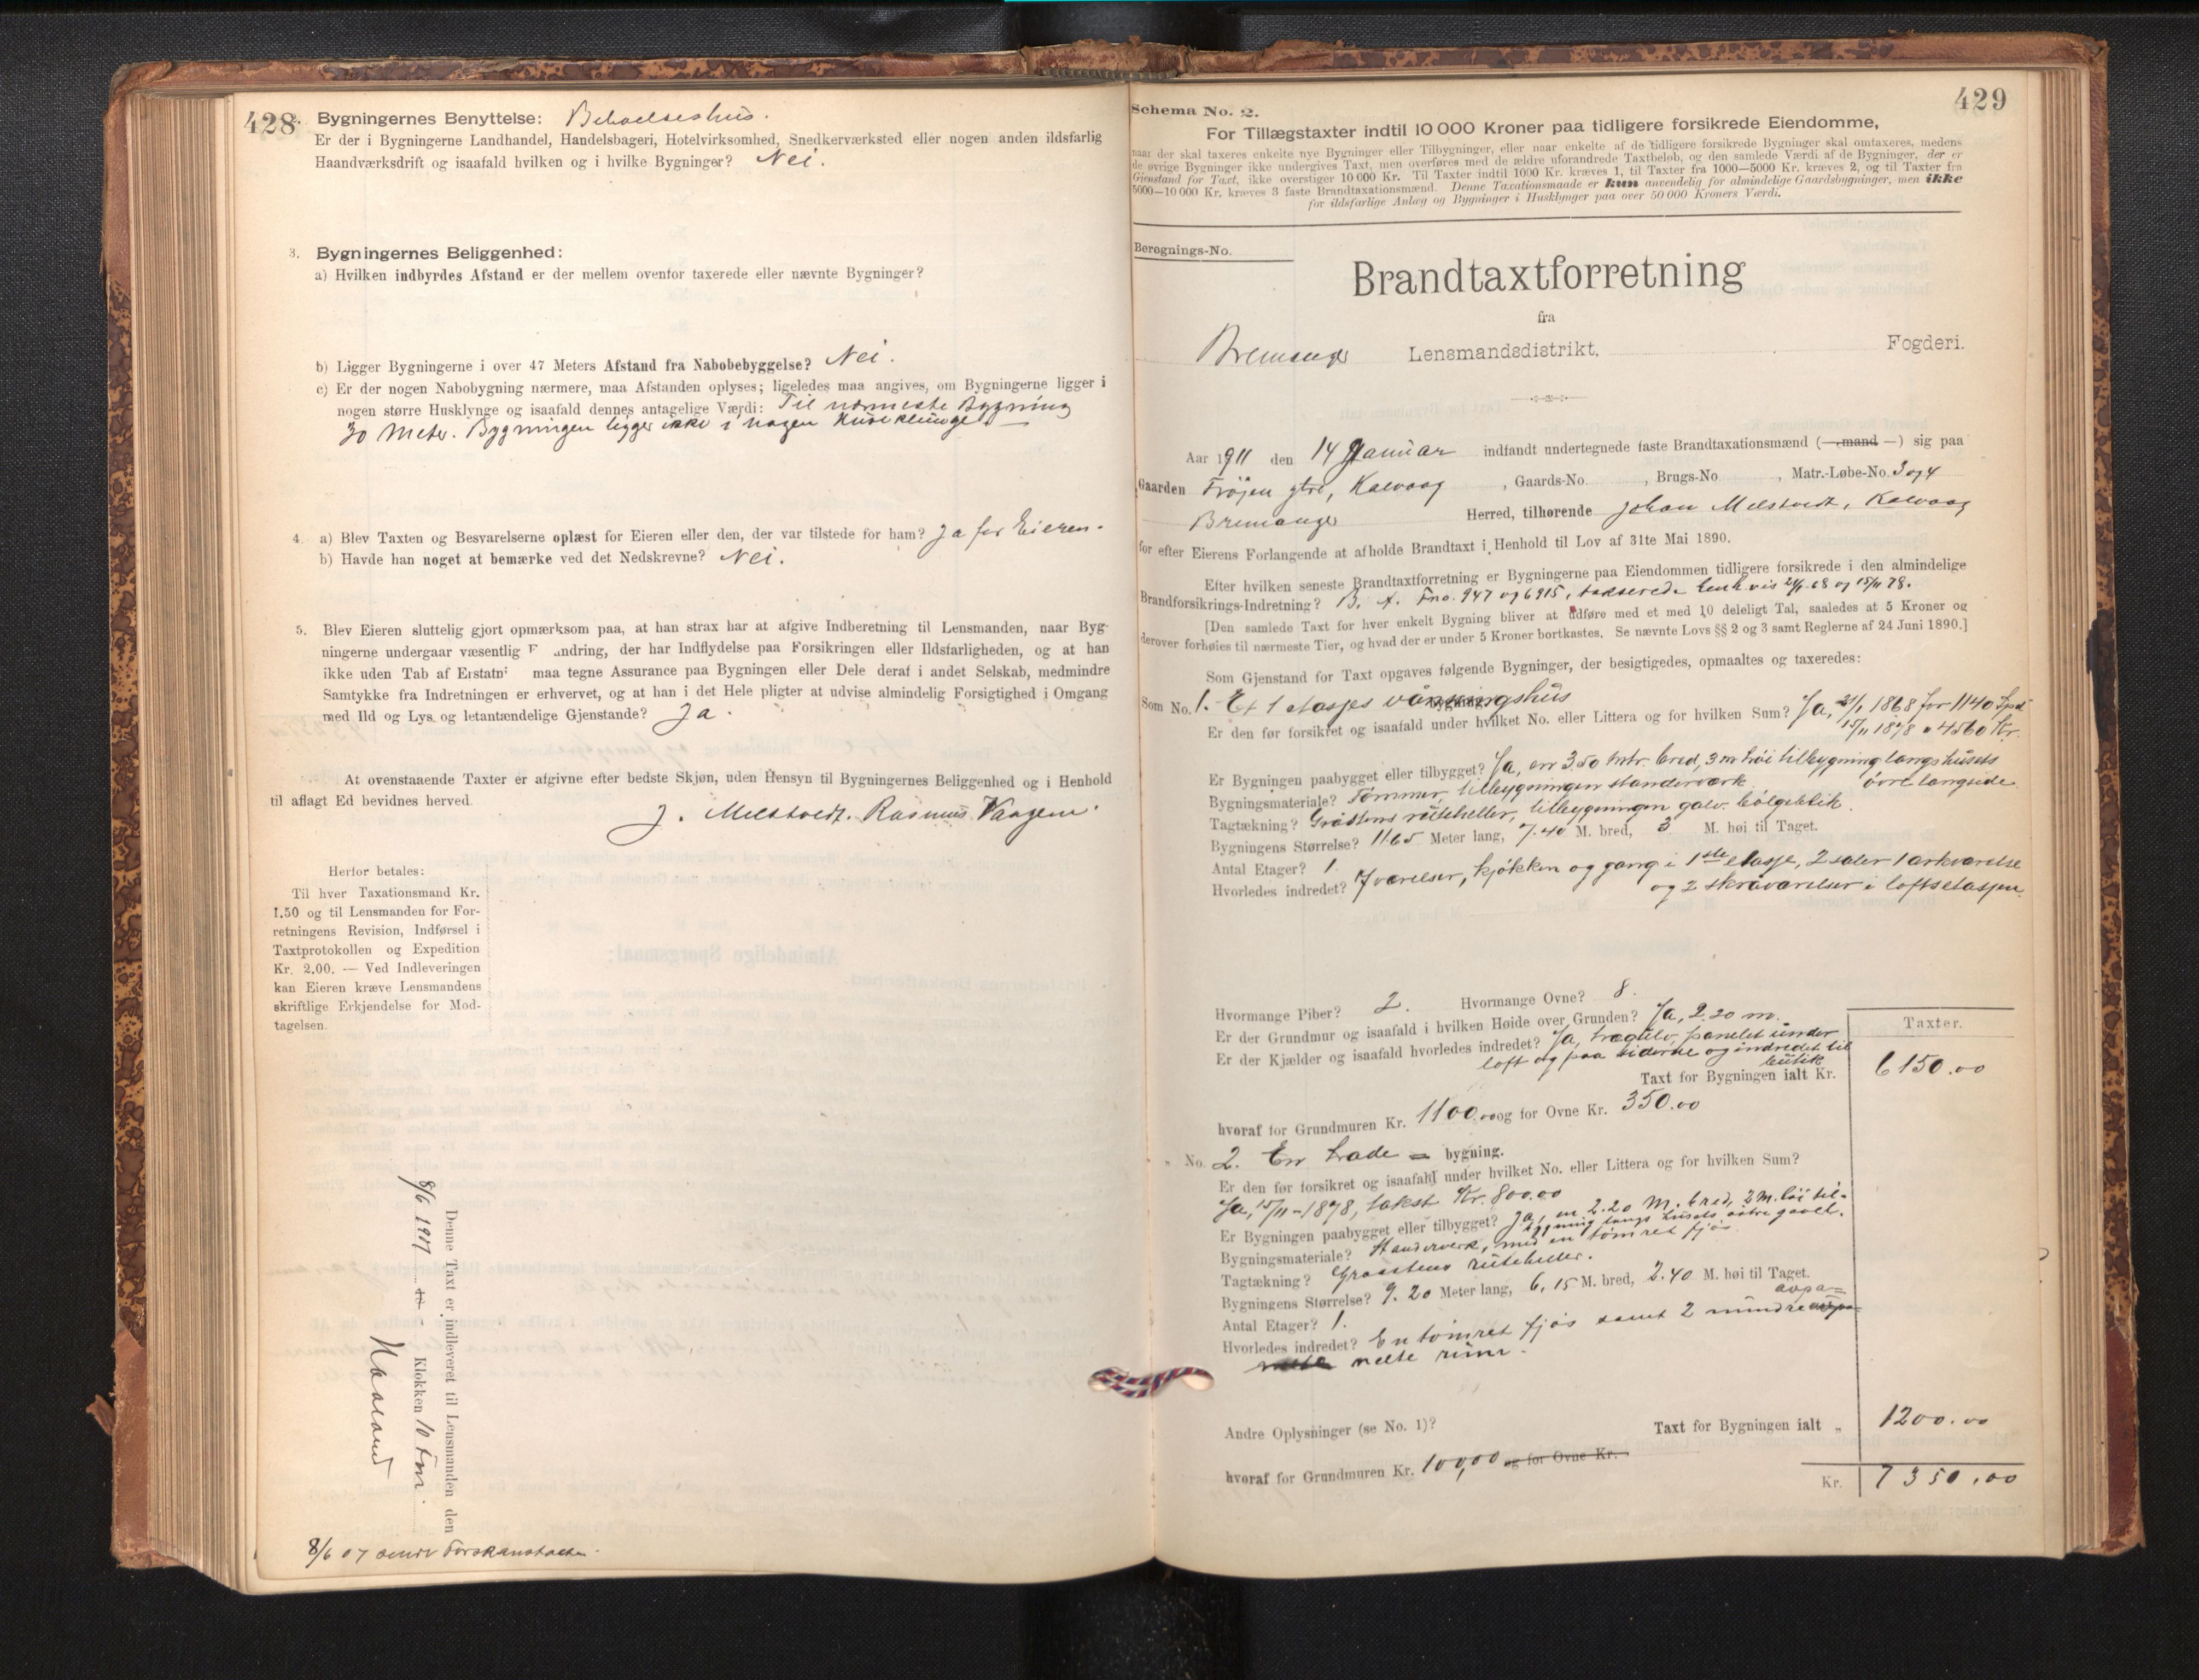 428
2. Bygningernes Benyttelse: Beboelseshus.
Er der i Bygningerne Landhandel, Handelsbageri, Hotelvirksomhed, Snedkerværksted eller nogen anden ildsfarlig
Haandværksdrift og isaafald hvilken og i hvilke Bygninger? Nei.
3. Bygningernes Beliggenhed:
a) Hvilken indbyrdes Afstand er der mellem ovenfor taxerede eller nævnte Bygninger?
b) Ligger Bygningerne i over 47 Meters Afstand fra Nabobebyggelse? Nei.
c) Er der nogen Nabobygning nærmere, maa Afstanden oplyses; ligeledes maa angives, om Bygningerne ligger i
nogen større Husklynge og isaafald dennes antagelige Værdi: Til nærmeste Bygning
30 Meter. Bygningen ligger ikke i nogen Huseklunge
4. a) Blev Taxten og Besvarelserne oplæst for Eieren eller den, der var tilstede for ham? Ja for Eieren.
b) Havde han noget at bemærke ved det Nedskrevne? Nei.
5. Blev Eieren sluttelig gjort opmærksom paa, at han strax har at afgive Indberetning til Lensmanden, naar Byg-
ningerne undergaar væsentlig F andring, der har Indflydelse paa Forsikringen eller Ildsfarligheden, og at han
ikke uden Tab af Erstatn maa tegne Assurance paa Bygningen eller Dele deraf i andet Selskab, medmindre
Samtykke fra Indretningen er erhvervet, og at han i det Hele pligter at udvise almindelig Forsigtighed i Omgang
med Ild og Lys og letantændelige Gjenstande? Ja.
At ovenstaaende Taxter er afgivne efter bedste Skjøn, uden Hensyn til Bygningernes Beliggenhed og i Henhold
til aflagt Ed bevidnes herved.
J. Melstvedt. Rasmus Vaagene.
Herfor betales:
Til hver Taxationsmand Kr.
1.50 og til Lensmanden for For-
retningens Revision, Indførsel i
Taxtprotokollen og Expedition
Kr. 2.00. — Ved Indleveringen
kan Eieren kræve Lensmandens
skriftlige Erkjendelse for Mod-
tagelsen.
Denne Taxt er indleveret til Lensmanden den
8/6 1907 Klokken 10 fm.
Haaland
8/6 07 sendt Forskanstalten.
429
Schema No. 2.
For Tillægstaxter indtil 10 000 Kroner paa tidligere forsikrede Eiendomme,
naar der skal taxeres enkelte nye Bygninger eller Tilbygninger, eller naar enkelte af de tidligere forsikrede Bygninger skal omtaxeres, medens
de øvrige Bygninger ikke undergives Taxt, men overføres med de ældre uforandrede Taxtbeløb, og den samlede Værdi af de Bygninger, der er
Gjenstand for Taxt, ikke overstiger 10 000 Kr. Til Taxter indtil 1000 Kr. kræves 1, til Taxter fra 1000—5000 Kr. kræves 2, og til Taxter fra
5000—10 000 Kr. kræves 3 faste Brandtaxationsmænd. Denne Taxationsmaade er kun anvendelig for almindelige Gaardsbygninger, men ikke
for ildsfarlige Anlæg og Bygninger i Husklynger paa over 50 000 Kroners Værdi.
Beregnings-No.
Brandtaxtforretning
fra
Bremanger Lensmandsdistrikt, Fogderi.
Aar 1911 den 14 Januar indfandt undertegnede faste Brandtaxationsmænd (—mand —) sig paa
Gaarden Frøjen ytre, Kalvaag, Gaards-No. , Brugs-No , Matr.-Løbe-No. 3 og 4
Bremanger Herred, tilhørende Johan Melstvedt, Kalvaag
for efter Eierens Forlangende at afholde Brandtaxt i Henhold til Lov af 31te Mai 1890.
Efter hvilken seneste Brandtaxtforretning er Bygningerne paa Eiendommen tidligere forsikrede i den almindelige
Brandforsikrings-Indretning? B. A. Fno. 947 og 6915, takserede henh.vis 24/1 68 og 15/11 78.
[Den samlede Taxt for hver enkelt Bygning bliver at udføre med et med 10 deleligt Tal, saaledes at 5 Kroner og
derover forhøies til nærmeste Tier, og hvad der er under 5 Kroner bortkastes. Se nævnte Lovs §§ 2 og 3 samt Reglerne af 24 Juni 1890.]
Som Gjenstand for Taxt opgaves følgende Bygninger, der besigtigedes, opmaaltes og taxeredes:
Som No. 1. Et 1 etasjes våningshus
Er den før forsikret og isaafald under hvilket No. eller Littera og for hvilken Sum? Ja, 24/1 1868 for 1140 Spd
15/11 1878 " 4560 Kr.
Er Bygningen paabygget eller tilbygget? Ja, en 3.50 mtr. bred, 3 m høi tilbygning langs husets
øvre langside
Bygningsmateriale? Tømmer, tilbygningen standerværk.
Tagtækning? Gråstens ruteheller, tilbygningen galv. bølgeblik.
Bygningens Størrelse? 11.65 Meter lang, 7.40 M. bred, 3 M. høi til Taget.
Antal Etager? 1
Hvorledes indredet? 7 værelser, kjøkken og gang i 1ste etasje, 2 saler 1 arkværelse
og 2 skråværelser i loftsetasjen.
Hvormange Piber? 2. Hvormange Ovne? 8.
Er der Grundmur og isaafald i hvilken Høide over Grunden? Ja, 2.20 m.
Er der Kjælder og isaafald hvorledes indredet? Ja, trægulv, panelet under
loft og paa siderne og indredet til
butik
Taxter.
Taxt for Bygningen ialt Kr. 6150.00
hvoraf for Grundmuren Kr. 1100.00 og for Ovne Kr. 350.00
" No. 2. En lade = bygning.
Er den før forsikret og isaafald under hvilket No. eller Littera og for hvilken Sum?
Ja, 15/11 - 1878, takst Kr. 800.00
Er Bygningen paabygget eller tilbygget? Ja, en 2.20 M. bred, 2 M. høi til-
bygning langs husets østre gavel.
Bygningsmateriale? Standerverk, med en tømret fjøs
Tagtækning? Graastens ruteheller.
Bygningens Størrelse? 9.20 Meter lang, 6,15 M. bred, 2.40 M. høi til Taget.
Antal Etager? 1.
Hvorledes indredet? En tømret fjøs samt 2 mindre avpa-
nelte rum.
Andre Oplysninger (se No. 1)? Taxt for Bygningen ialt „ 1200.00
hvoraf for Grundmuren Kr. 100,00 og for Ovne Kr.
Kr. 7350.00